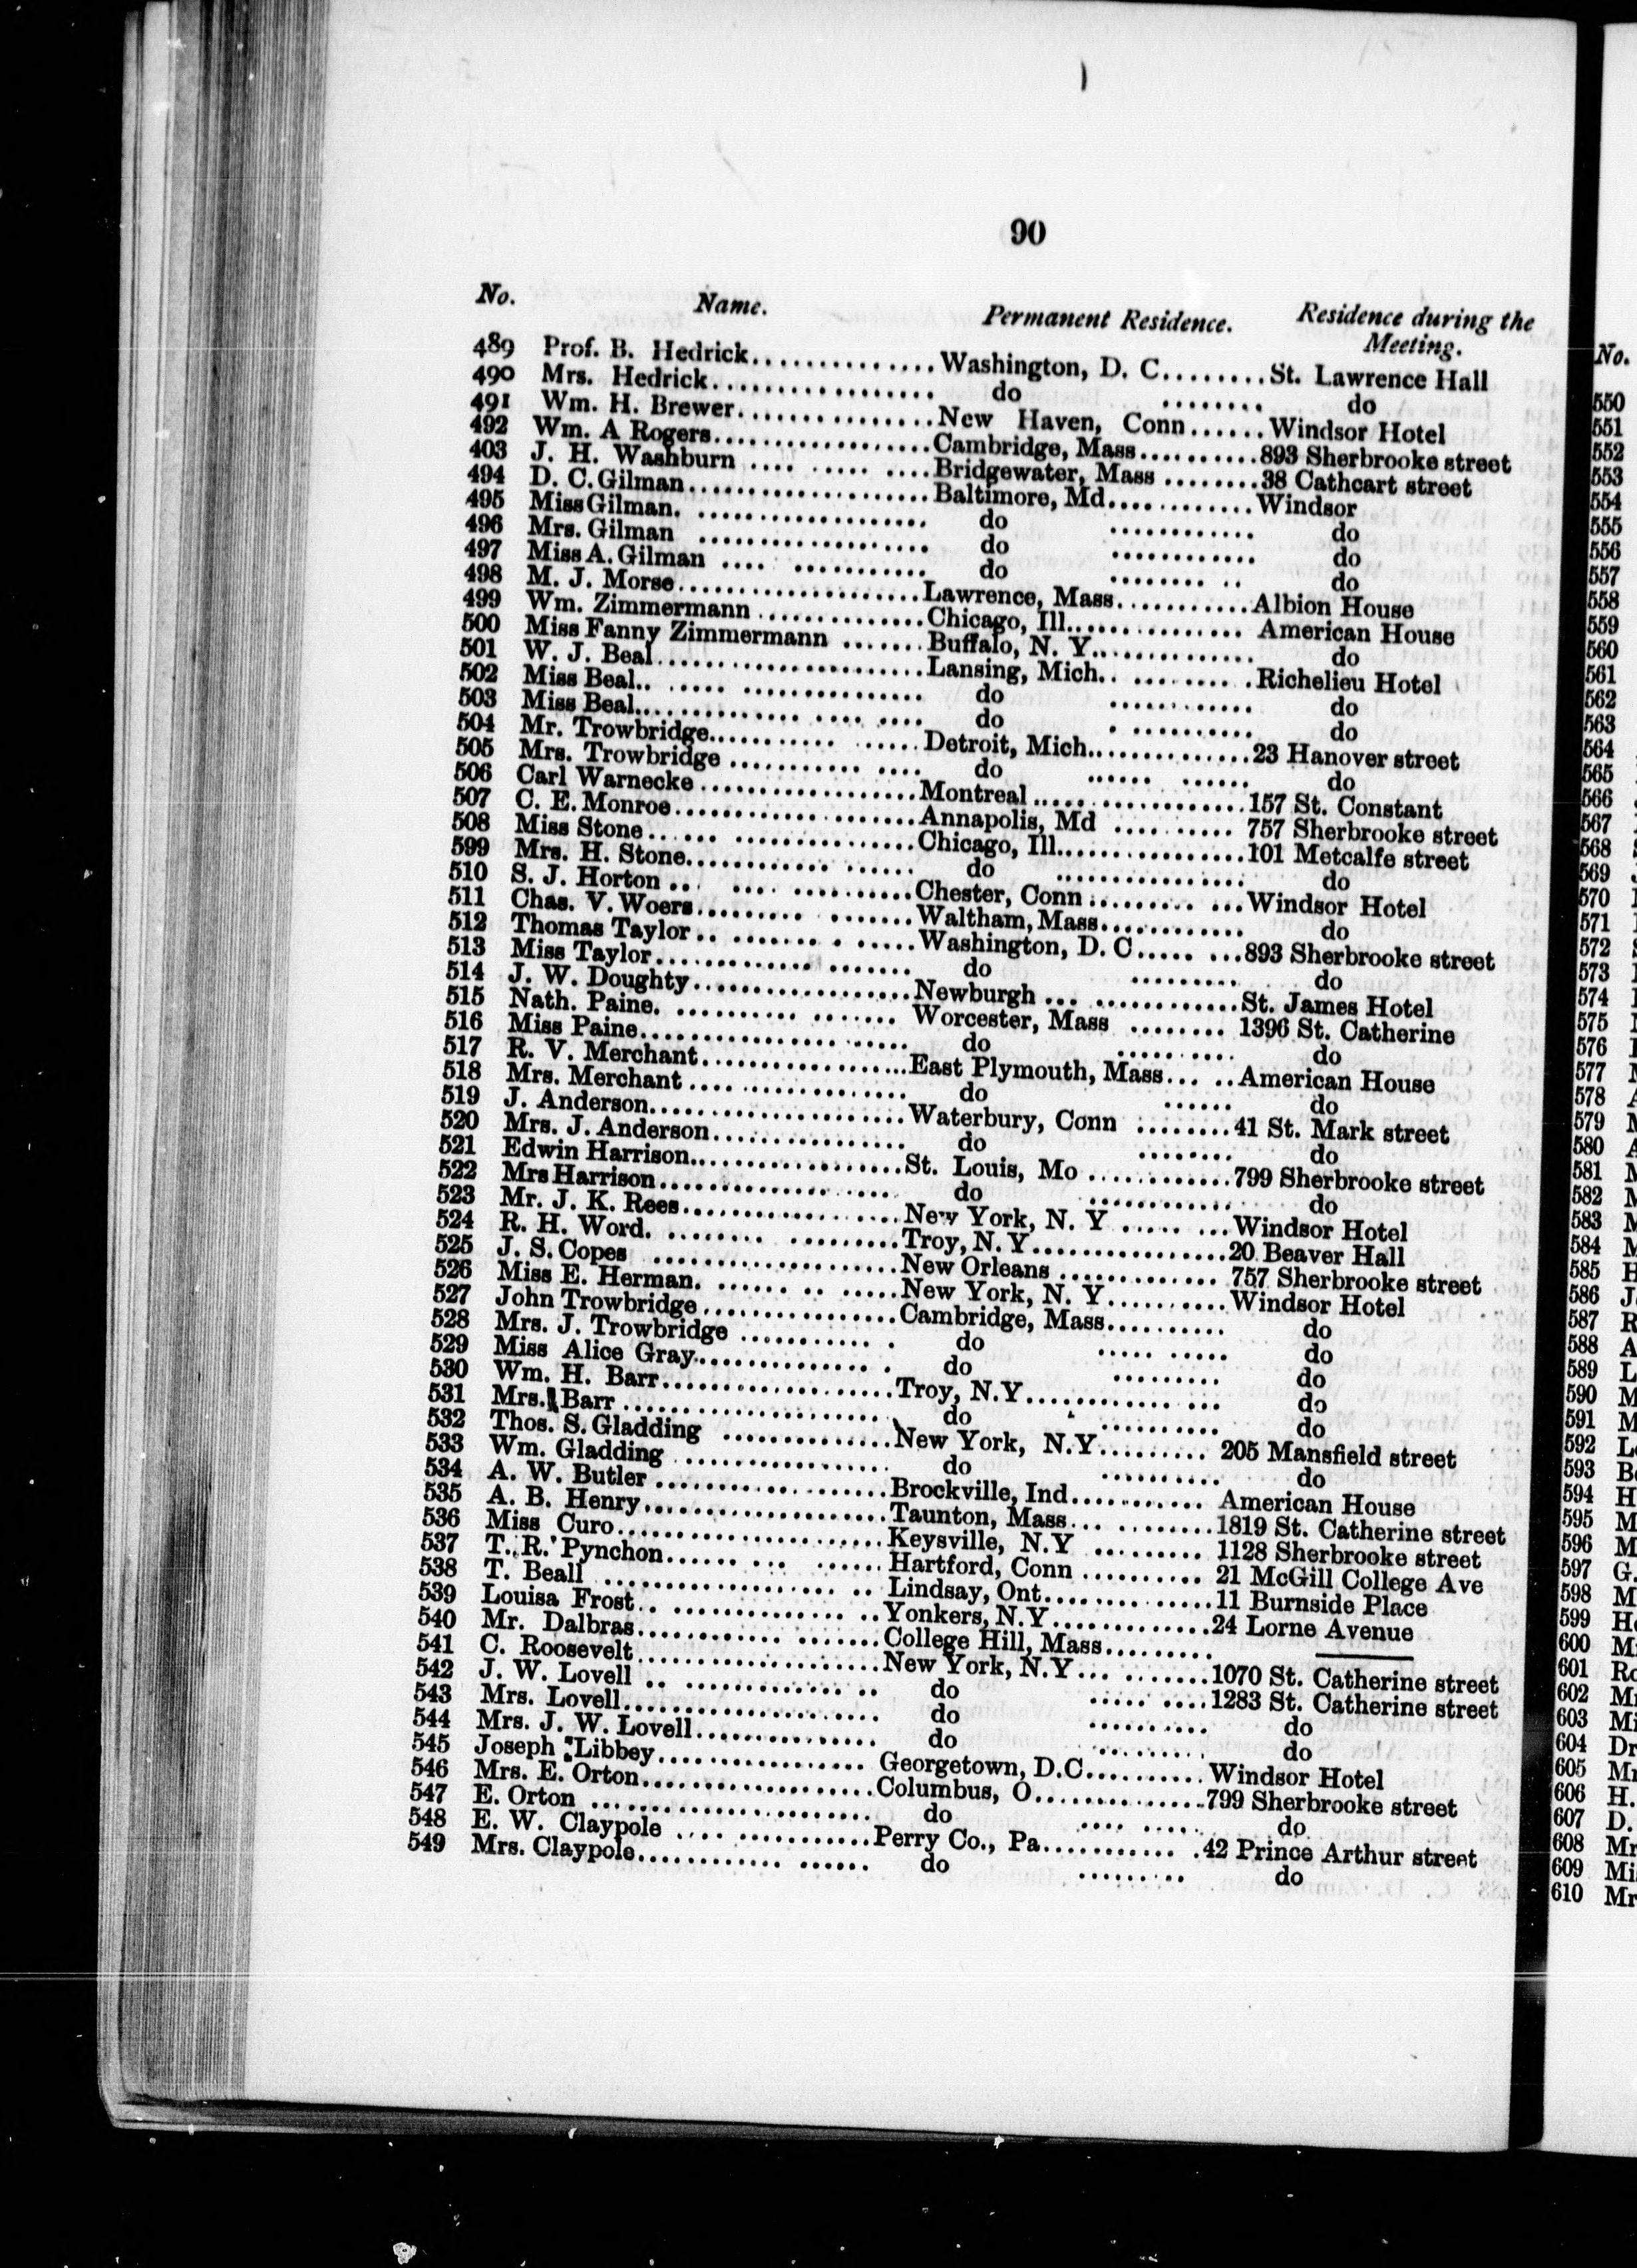 90
No. Name. Permanent Residence. Residence during the Meeting.
489 Prof. B. Hedrick.............. Washington, D. C........ St. Lawrence Hall
490 Mrs. Hedrick................. do ........ do
491 Wm. H. Brewer............... New Haven, Conn...... Windsor Hotel
492 Wm. A Rogers................. Cambridge, Mass......... 893 Sherbrooke street
403 J. H. Washburn .... ..... .... Bridgewater, Mass ........ 38 Cathcart street
494 D. C. Gilman................... Baltimore, Md............ Windsor
495 Miss Gilman. .................. do ............ do
496 Mrs. Gilman .................. do ............ do
497 Miss A. Gilman .... ........... do ........ .. do
498 M. J. Morse................... Lawrence, Mass........... Albion House
499 Wm. Zimmermann ............. Chicago, Ill............... American House
500 Miss Fanny Zimmermann ....... Buffalo, N. Y.............. do
501 W. J. Beal..................... Lansing, Mich.. .......... Richelieu Hotel
502 Miss Beal.. ..... .............. do ............ do
503 Miss Beal................ .... .... do . .......... do
504 Mr. Trowbridge.......... ...... Detroit, Mich............. 23 Hanover street
505 Mrs. Trowbridge ........... .... do ...... ...... do
506 Carl Warnecke ................. Montreal ................. 157 St. Constant
507 C. E. Monroe................... Annapolis, Md .......... 757 Sherbrooke street
508 Miss Stone...... .............. Chicago, Ill............... 101 Metcalfe street
599 Mrs. H. Stone............ ...... do ............... do
510 S. J. Horton .. .... .......... Chester, Conn ......... ... Windsor Hotel
511 Chas. V. Woers......... ....... Waltham, Mass............ do
512 Thomas Taylor .. ....... . ..... Washington, D. C..... ... 893 Sherbrooke street
513 Miss Taylor............. ....... do ......... do
514 J. W. Doughty................. Newburgh ... ............ St. James Hotel
515 Nath. Paine. .......... ....... Worcester, Mass ........ 1396 St. Catherine
516 Miss Paine...................... do .......... do
517 R. V. Merchant................. East Plymouth, Mass... .. American House
518 Mrs. Merchant .................. do ...... do
519 J. Anderson..................... Waterbury, Conn ........ 41 St. Mark street
520 Mrs. J. Anderson................ do ........ do
521 Edwin Harrison.................. St. Louis, Mo ............ 799 Sherbrooke street
522 Mrs Harrison............... .... do ............ do
523 Mr. J. K. Rees.................. New York, N. Y ...... ... Windsor Hotel
524 R. H. Word. ........ ......... Troy, N. Y................ 20 Beaver Hall
525 J. S. Copes .................... New Orleans ............. 757 Sherbrooke street
526 Miss E. Herman. ...... .. ..... New York, N. Y.......... Windsor Hotel
527 John Trowbridge................ Cambridge, Mass.......... do
528 Mrs. J. Trowbridge ........... . do ..... ..... do
529 Miss Alice Gray............... . do ......... do
530 Wm. H. Barr................... Troy, N.Y............. ... do
531 Mrs. Barr ..................... do .......... do
532 Thos. S. Gladding .............. New York, N.Y.......... 205 Mansfield street
533 Wm. Gladding .................. do .......... do
534 A. W. Butler ................... Brockville, Ind........... American House
535 A. B. Henry.................... Taunton, Mass... ......... 1819 St. Catherine street
536 Miss Curo...................... Keysville, N.Y ......... 1128 Sherbrooke street
537 T. R. Pynchon...... ... ...... Hartford, Conn .......... 21 McGill College Ave
538 T. Beall ................... .. Lindsay, Ont........ ..... 11 Burnside Place
539 Louisa Frost.. .............. .. Yonkers, N.Y............. 24 Lorne Avenue
540 Mr. Dalbras............ ....... College Hill, Mass......... ———
541 C. Roosevelt.................... New York, N.Y... ....... 1070 St. Catherine street
542 J. W. Lovell .. ............. .. do ..... .... 1283 St. Catherine street
543 Mrs. Lovell..................... do .......... do
544 Mrs. J. W. Lovell............... do .......... do
545 Joseph Libbey................. Georgetown, D.C.......... Windsor Hotel
546 Mrs. E. Orton................... Columbus, O............... 799 Sherbrooke street
547 E. Orton ....................... do .... ..... do
548 E. W. Claypole .... ........... Perry Co., Pa........... . 42 Prince Arthur street
549 Mrs. Claypole............ ...... do ......... do
No.
550
551
552
553
554
555
556
557
558
559
560
561
562
563
564
565
566
567
568
569
570
571
572
573
574
575
576
577
578
579
580
581
582
583
584
585
586
587
588
589
590
591
592
593
594
595
596
597 G.
598
599
600
601
602
603
604 Dr
605
606 H.
607 D.
608 Mr
609 Mi
610 Mr